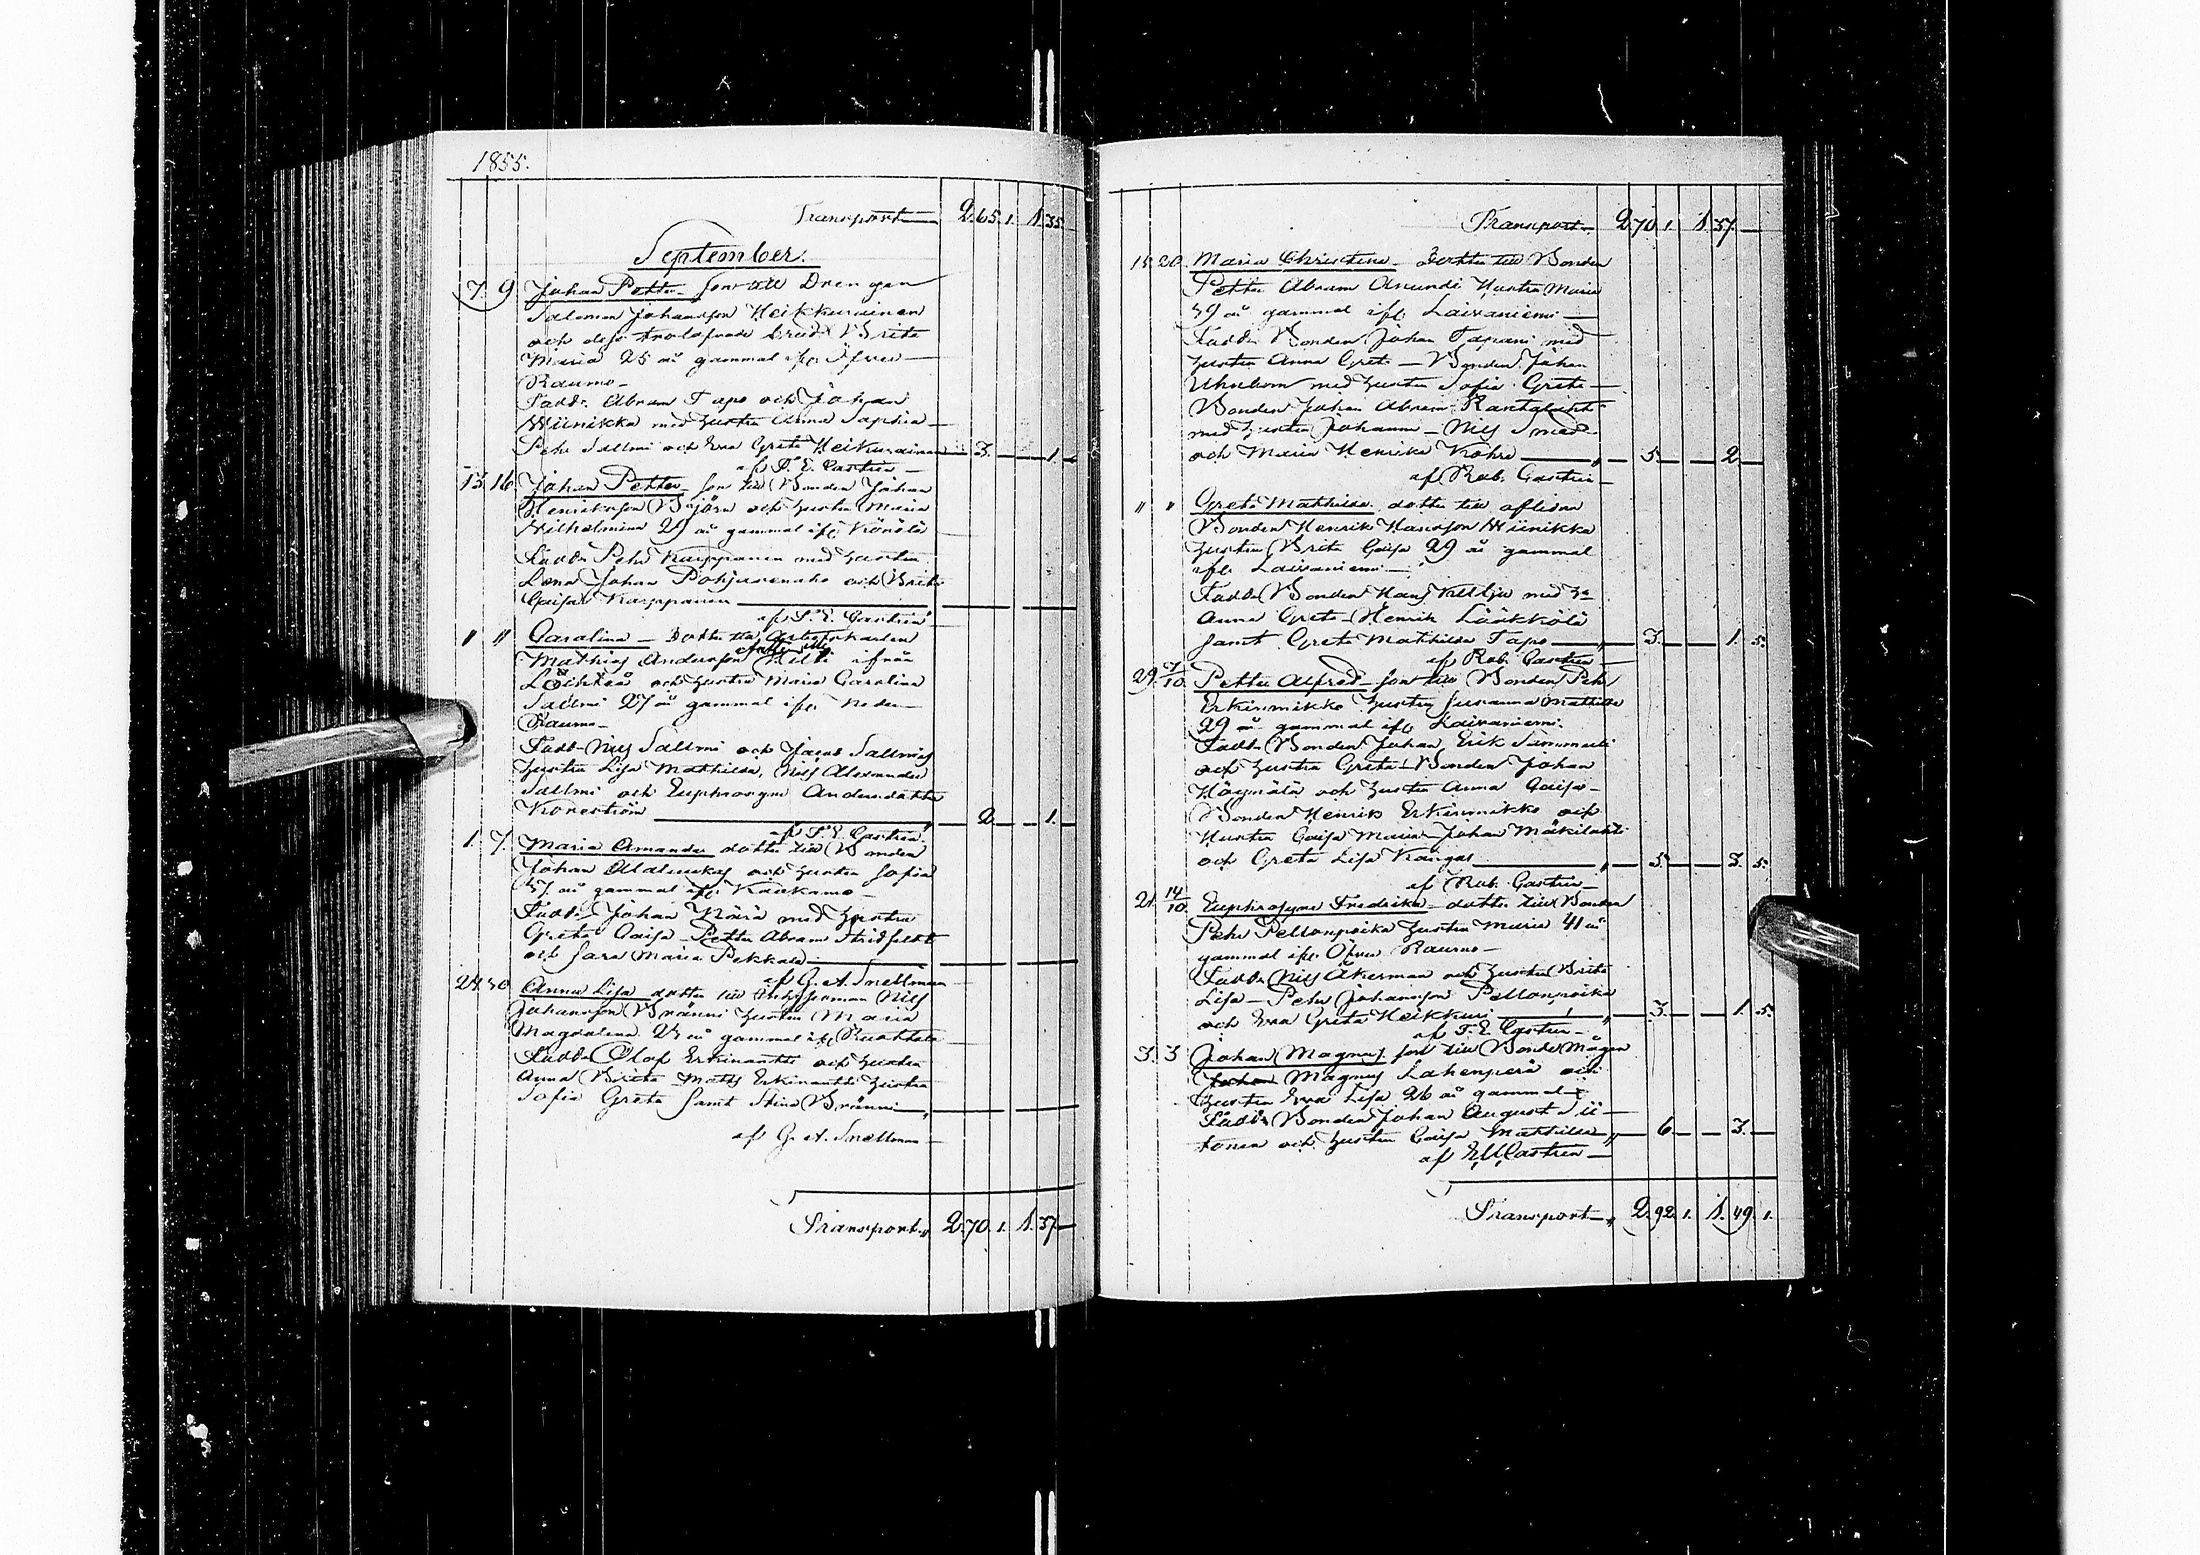 1855.
Transport 2.65.1. 1.35.
September.
7. 9. Johan Petter son till Drengen
Salomon Johansson Heikkurainen
och dess trolofvade brud Brita
Maria 25 år gammal ifr. Öfver
Raumo
Fadd. Abram Tapo och Johan
Wiinikka med hustru Anna Sophia
Pehr Sallmi och Eva Greta Heikurainen 3. 1.
af F. E. Castrén
13. 16. Johan Petter son till Bonden Johan
Henriksson Björn och hustru Maria
Wilhelmina 29 år gammal ifr. Könölä
Fadd. Pehr Karppanen med hustru
Lena Johan Pohjasenaho och Brita
Caisa Karppanen
af F. E. Castrén
" " Carolina Dotter till Arbetskarlen
Mathias Andersson ifrån
och hustru Maria Carolina
Sallmi 27 år gammal ifr. Neder
Raumo
Fadd. Nils Sallmi och Jacob Sallmis
hustru Lisa Mathilda, Nils Alexander
Sallmi och Euphrosyne Andersdotter
Korström 2. 1.
af F. E. Castrén
1. 7. Maria Amanda dotter till Bonden
Johan och hustru Sofia
37 år gammal ifr. Kaakamo
Fadd. Johan med hustru
Greta Caisa Petter Abram Stridfeldt
och Sara Maria Pekkala
af G. A. Snellman
24. 30. Anna Lisa dotter till Nils
Johansson Bränni hustru Maria
Magdalena år gammal ifr. Ruottala
Fadd. Olof Erkinantti och hustru
Anna Brita Matts Erkinantti hustru
Sofia Greta samt Stina Bränni
af G. A. Snellman
Transport 2.70.1. 1.37
Transport 2.70.1. 1.37
15. 20. Maria Christina Dotter till Bonden
Petter Abram Anundi Hustru Maria
39 år gammal ifr. Laivaniemi
Fadd. Bonden Johan Tapani med
hustru Anna Greta Bonden Johan
med hustru Sofia Greta
Bonden Johan Abram Rantalaht
med hustru Johanna Nils Smed
och Maria Henrika 5. 2.
af Rob. Castrén
" " Greta Mathilda dotter till aflidne
Bonden Henrik Hansson Wiinikka
hustru Brita Caisa 29 år gammal
ifr. Laivaniemi
Fadd. Bonden Hans med h:u
Anna Greta Henrik Lääkkölä
samt Greta Mathilda Tapo 3. 1. 5.
af Rob. Castrén
29. 7/10 Petter Alfred son till Bonden Pehr
Erkinmikko hustru Susanna Mathilda
29 år gammal ifr. Laivaniemi
Fadd. Bonden Johan Erik
och hustru Greta Bonden Johan
och hustru Anna Caisa
Bonden Henrik Erkinmikko och
Hustru Caisa Maria Johan Mäkilahti
och Greta Lisa Kangas 5. 3. 5.
af Rob. Castrén
21. 14/10 Euphrosyne Fredrika dotter till Bonden
Pehr Pellonpoika hustru Maria 41 år
gammal ifr. Öfver Raumo
Fadd. Nils Åkerman och hustru Brita
Lisa Pehr Johansson Pellonpoika
och Eva Greta Heikkuri 3. 1. 5.
af F. E. Castrén
3. 3 Johan Magnus son till Bonde Mågen
Johan Magnus Lahenperä och
hustru Eva Lisa 26 år gammal
Fadd. Bonden Johan August Sii-
tonen och hustru Caisa Mathilda 6. 3.
af Castrén
Transport 2.92.1. 1.49.1.